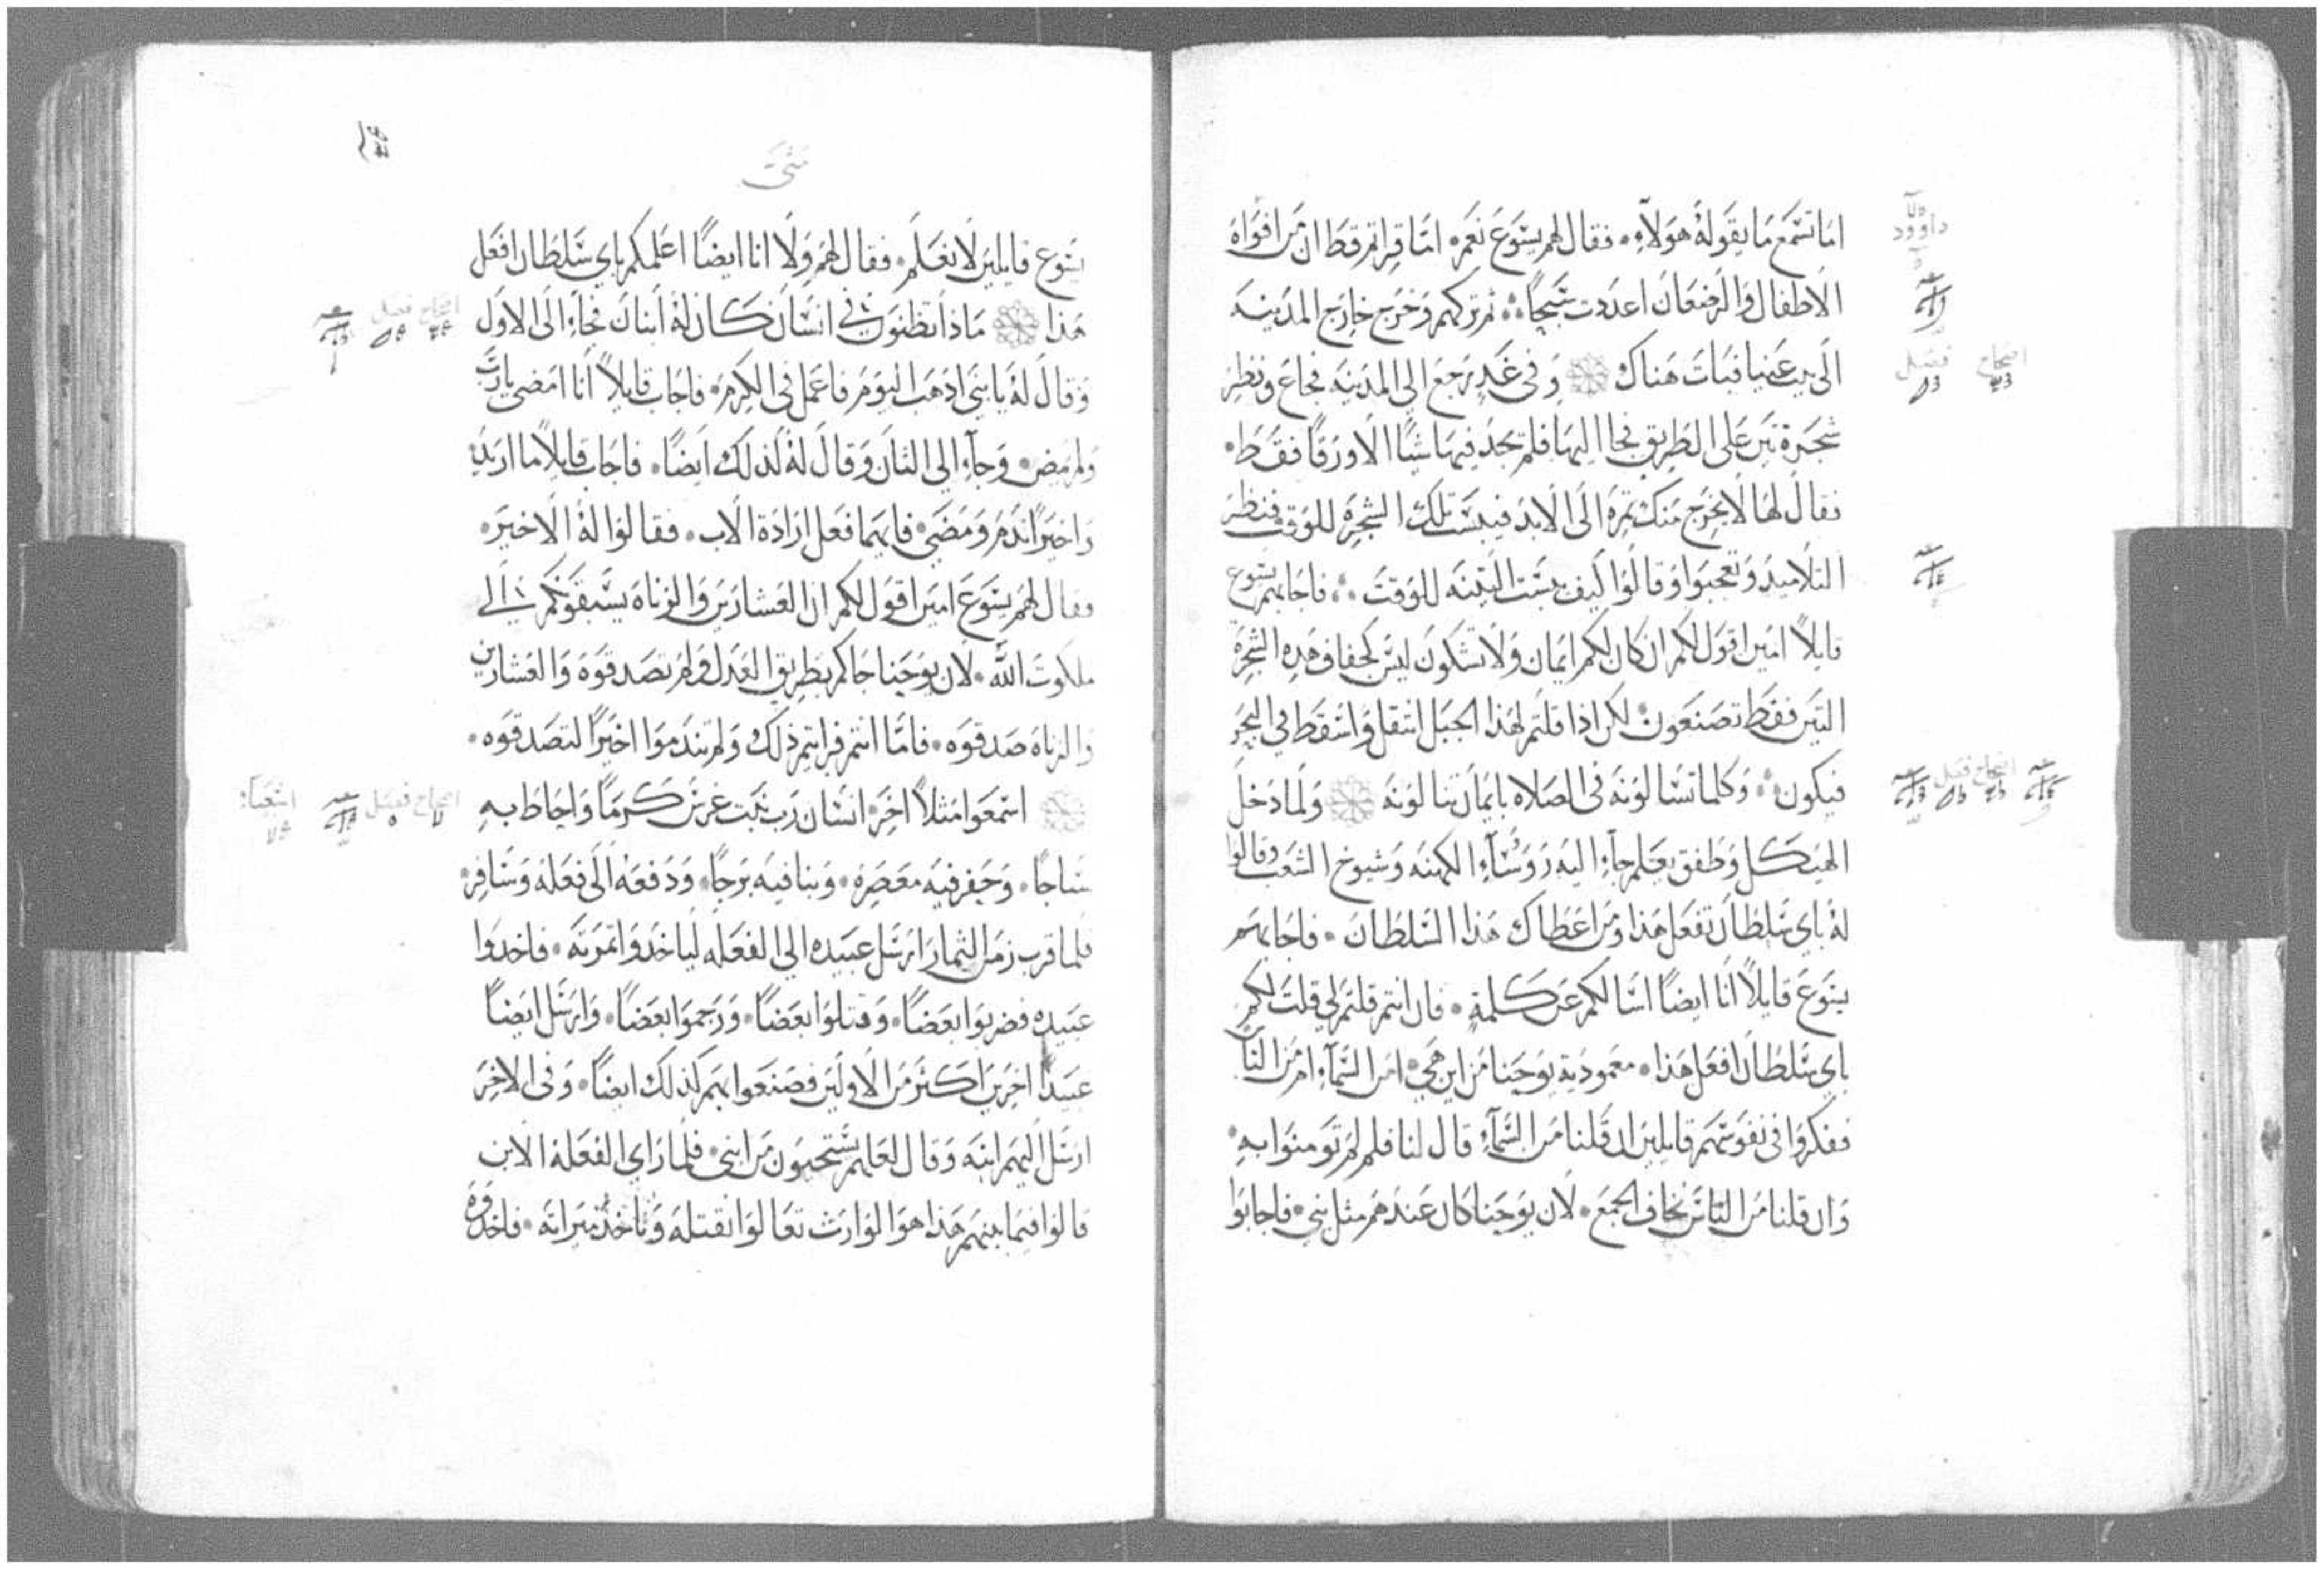 اما تسمع ما يقوله هولآء. فقال لهم يسوع نعم. اما قراتم قط ان من افواه
الاطفال والرضعان اعددت تسبيحًا. ثم تركهم وخرج خارج المدينه
الى بيت عنيا فبات هناك وفي غدٍ رجع الي المدينه فجاع ونظر
شجرة تين على الطريق فجا اليها فلم يجد فيها شيًا الا ورقًا فقط.
فقال لها لا يخرج منك ثمرة الى الابد فيبست تلك الشجرة للوقت فنظر
التلاميد وتعجبوا وقالوا كيف يبست التينه للوقت. فاجابهم يسوع
قايلاً امين اقول لكم ان كان لكم ايمان ولا تشكون ليس كجفاف هده الشجرة
التين فقط تصنعون. لكن اذا قلتم لهذا الجبل انتقل واسقط في البحر
فيكون. وكلما تسالونه في الصلاه بايمان تنالونه ولما دخل
الهيكل وطفق يعلم جآء اليه روسآء الكهنه وشيوخ الشعب وقالوا
له باي سلطان تفعل هذا ومن اعطاك هذا السلطان. فاجابهم
يسوع قايلاً انا ايضًا اسالكم عن كلمةٍ. فان انتم قلتم لي قلت لكم
باي سلطان افعل هذا. معمودية يوحنا من اين هي. امن السمآء ام من الناس
ففكروا في نفوسهم قايلين ان قلنا من السمآء قال لنا فلم لم تومنوا به.
وان قلنا من الناس نخاف الجمع. لان يوحنا كان عندهم مثل نبي. فاجابوا
متى
يسوع قايلين لا نعلم. فقال لهم ولا انا ايضًا اعلمكم باي سلطان افعل
هذا ماذا تظنون في انسان كان له ابنان فجاء الى الاول
وقال له يا بني اذهب اليوم فاعمل في الكرم. فاجاب قايلاً انا امضي يارب
ولم يمض. وجآء الي الثان وقال له كذلك ايضًا. فاجاب قايلاً ما اريد
واخيرًا ندم ومضى. فايهما فعل ارادة الاب. فقالوا له الاخير.
فقال لهم يسوع امين اقول لكم ان العشارين والزناه يسبقونكم الي
ملكوت الله. لان يوحنا جاكم بطريق العدل ولم تصدقوه والعشارين
والزناه صدقوه. فامّا انتم فرايتم ذلك ولم تندموا اخيرًا لتصدقوه.
اسمعوا مثلاً اخر. انسان رب بيت غرس كرمًا واحاط به
سياجًا. وحفر فيه معصرة. وبنا فيه برجًا. ودفعه الى فعله وسافر.
فلما قرب زمن الثمار ارسل عبيده الي الفعله لياخدوا ثمرته. فاخدوا
عبيده فضربوا بعضًا. وقتلوا بعضًا. ورجموا بعضًا. وارسل ايضًا
عبيدًا اخرين اكثر من الاولين فصنعوا بهم كذلك ايضًا. وفي الاخر
ارسل اليهم ابنه وقال لعلهم يستحيون من ابني. فلما راي الفعلة الابن
قالوا فيما بينهم هذا هو الوارث تعالوا نقتله وناخذ ميراثه. فاخدوه